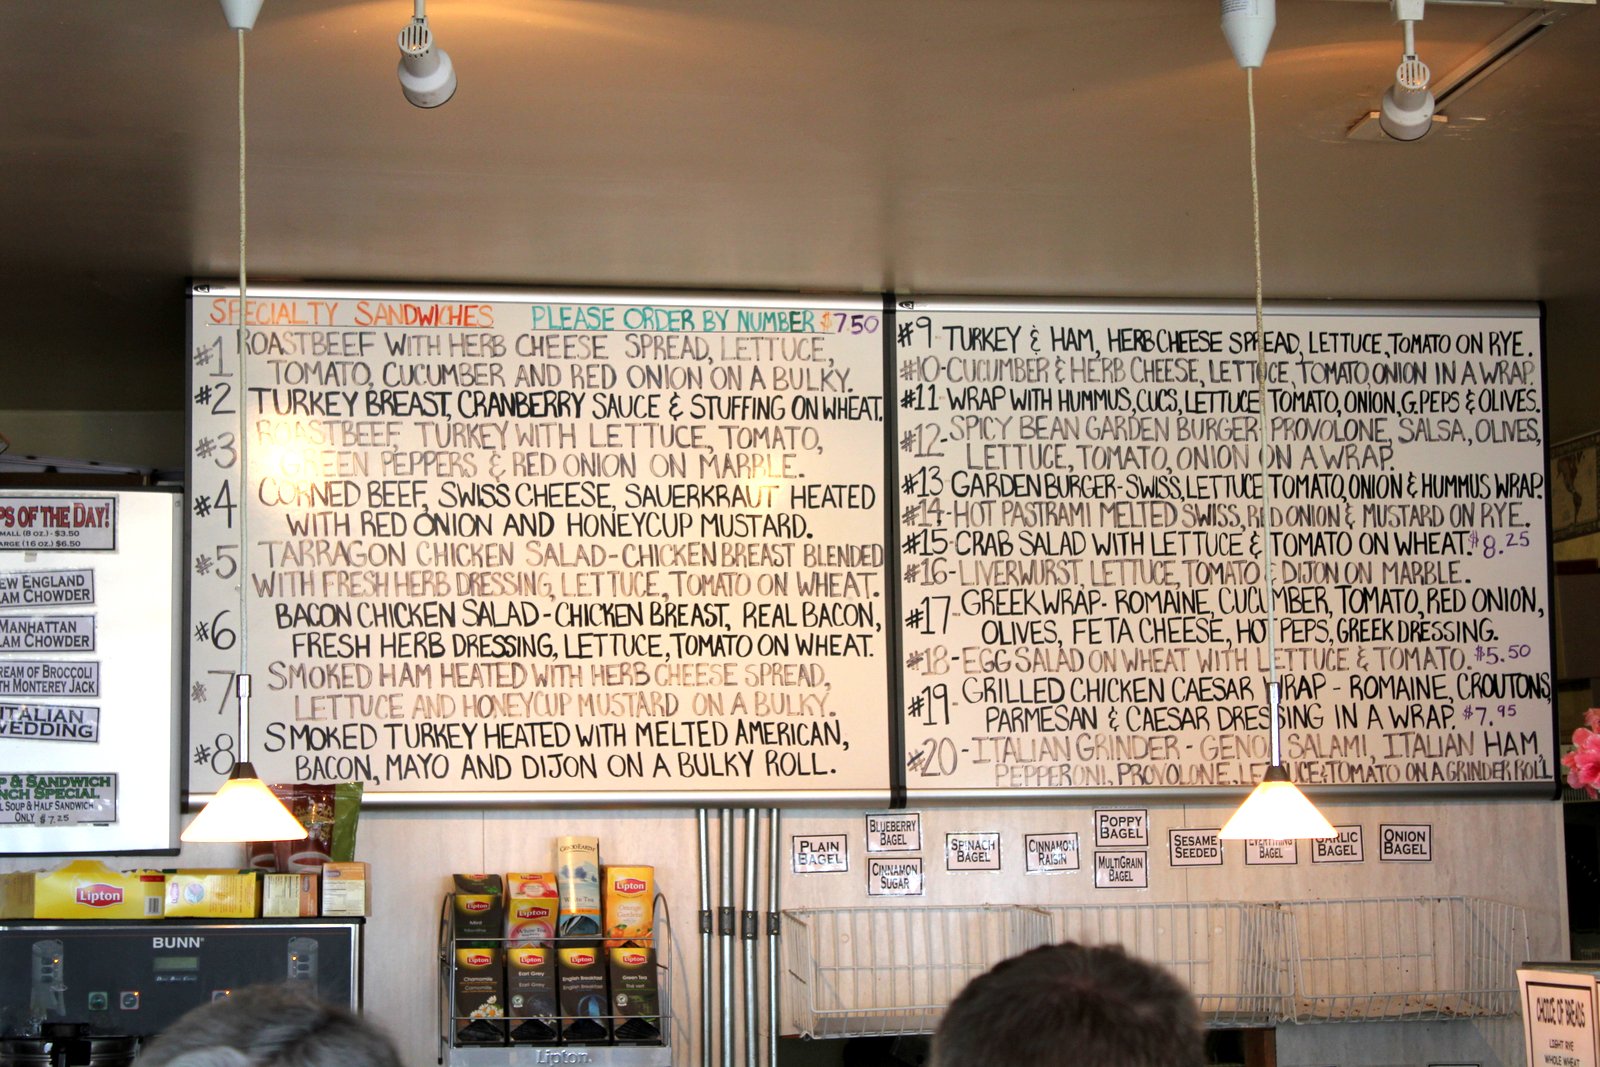 SPECIALTY SANDWICHES PLEASE ORDER BY NUMBER $7.50
#1 ROASTBEEF WITH HERB CHEESE SPREAD, LETTUCE,
TOMATO, CUCUMBER AND RED ONION ON A BULKY.
#2 TURKEY BREAST, CRANBERRY SAUCE & STUFFING ON WHEAT.
#3 ROASTBEEF, TURKEY WITH LETTUCE, TOMATO,
GREEN PEPPERS & RED ONION ON MARBLE.
#4 CORNED BEEF, SWISS CHEESE, SAUERKRAUT HEATED
WITH RED ONION AND HONEYCUP MUSTARD.
#5 TARRAGON CHICKEN SALAD - CHICKEN BREAST BLENDED
WITH FRESH HERB DRESSING, LETTUCE, TOMATO ON WHEAT.
#6 BACON CHICKEN SALAD - CHICKEN BREAST, REAL BACON,
FRESH HERB DRESSING, LETTUCE, TOMATO ON WHEAT.
#7 SMOKED HAM HEATED WITH HERB CHEESE SPREAD,
LETTUCE AND HONEYCUP MUSTARD ON A BULKY.
#8 SMOKED TURKEY HEATED WITH MELTED AMERICAN,
BACON, MAYO AND DIJON ON A BULKY ROLL.
#9 - TURKEY & HAM, HERB CHEESE SPREAD, LETTUCE, TOMATO ON RYE.
#10 - CUCUMBER & HERB CHEESE, LETTUCE, TOMATO, ONION IN A WRAP.
#11 - WRAP WITH HUMMUS, CUCS, LETTUCE TOMATO, ONION, G.PEPS & OLIVES.
#12 - SPICY BEAN GARDEN BURGER - PROVOLONE, SALSA, OLIVES,
LETTUCE, TOMATO, ONION ON A WRAP.
#13 GARDENBURGER - SWISS, LETTUCE TOMATO, ONION & HUMMUS WRAP.
#14 - HOT PASTRAMI MELTED SWISS, RED ONION & MUSTARD ON RYE.
#15 - CRAB SALAD WITH LETTUCE & TOMATO ON WHEAT. $8.25
#16 - LIVERWURST, LETTUCE, TOMATO & DIJON ON MARBLE.
#17 - GREEK WRAP - ROMAINE, CUCUMBER, TOMATO, RED ONION,
OLIVES, FETA CHEESE, HOT PEPS, GREEK DRESSING.
#18 - EGG SALAD ON WHEAT WITH LETTUCE & TOMATO. $5.50
#19 - GRILLED CHICKEN CAESAR WRAP - ROMAINE, CROUTONS,
PARMESAN & CAESAR DRESSING IN A WRAP. $7.95
#20 - ITALIAN GRINDER - GENOA SALAMI, ITALIAN HAM,
PEPPERONI, PROVOLONE, LETTUCE & TOMATO ON A GRINDER ROLL
PS OF THE DAY!
MALL (8 oz.) - $3.50
ARGE (16 oz.) $6.50
EW ENGLAND
AM CHOWDER
MANHATTAN
AM CHOWDER
REAM OF BROCCOLI
TH MONTEREY JACK
ITALIAN
WEDDING
P & SANDWICH
NCH SPECIAL
L SOUP & HALF SANDWICH
ONLY $7.25
PLAIN
BAGEL
BLUEBERRY
BAGEL
CINNAMON
SUGAR
SPINACH
BAGEL
CINNAMON
RAISIN
POPPY
BAGEL
MULTIGRAIN
BAGEL
SESAME
SEEDED
EVERYTHING
BAGEL
GARLIC
BAGEL
ONION
BAGEL
Lipton
BUNN
Lipton
Mint
Lipton
White Tea
GOOD EARTH
White Tea
Lipton
Orange
Lipton
Chamomile
Lipton
Earl Grey
Lipton
English Breakfast
Lipton
Green Tea
Lipton
CHOICE OF BREADS
LIGHT RYE
WHOLE WHEAT